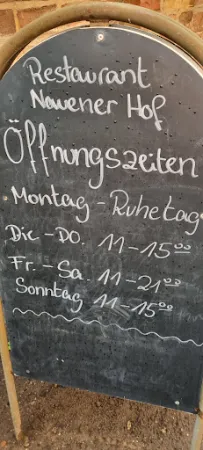 Restaurant
Nauener Hof
Öffnungszeiten
Montag - Ruhetag
Die - Do. 11-15⁰⁰
Fr. - Sa. 11-21⁰⁰
Sonntag 11-15⁰⁰